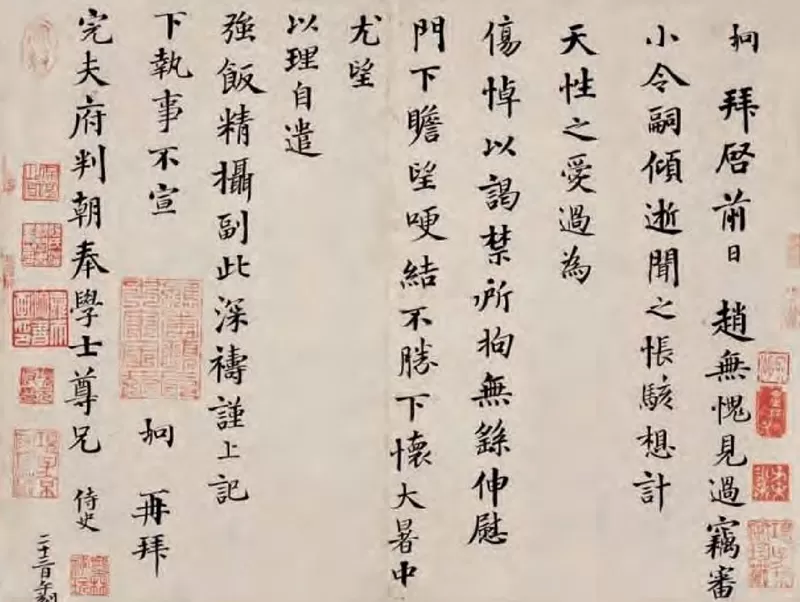 坰 拜啓前日 趙無愧見過竊審
小令嗣傾逝聞之悵駭想計
天性之愛過為
傷悼以謁禁所拘無繇伸慰
門下瞻望哽結不勝下懷大暑中
尤望
以理自遣
強飯精攝副此深禱謹上記
下執事不宣 坰 再拜
完夫府判朝奉學士尊兄 侍史
日午刻